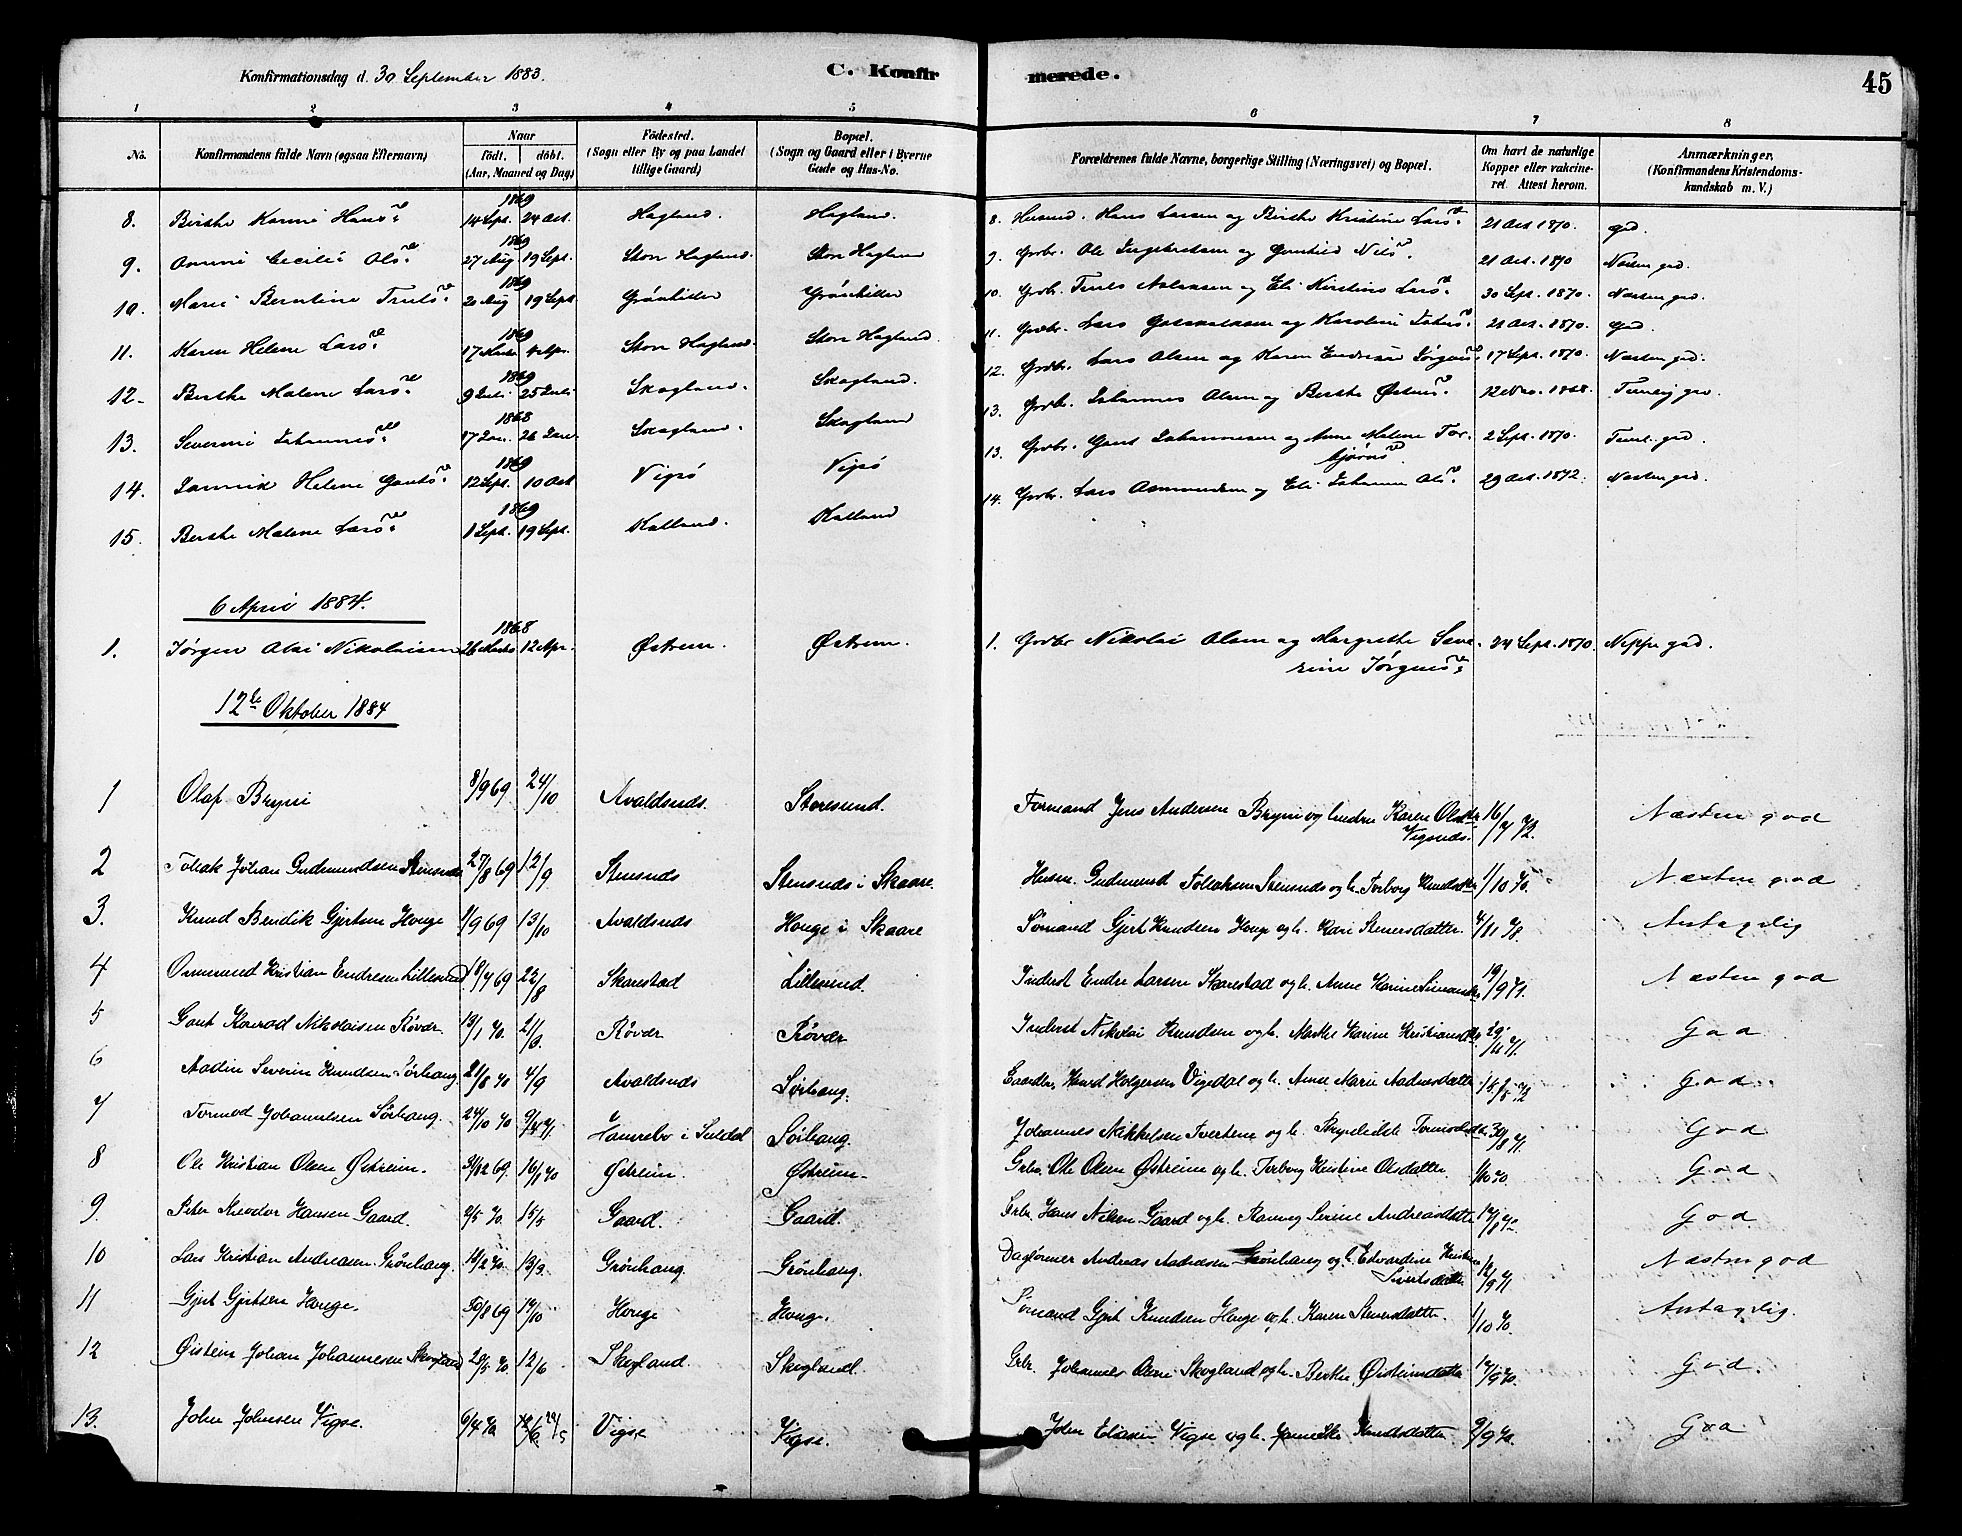 Konfirmationsdag d. 30 September 1883.
C. Konfirmerede.
45
1 2 3 4 5 6 7 8
No. Konfirmandens fulde Navn (ogsaa Efternavn) Naar födt. döbt. (Aar, Maaned og Dag) Födested. (Sogn eller By og paa Landet tillige Gaard) Bopæl. (Sogn og Gaard eller i Byerne Gade og Hus-No. Forældrenes fulde Navne, borgerlige Stilling (Næringsvei) og Bopæl. Om havt de naturlige Kopper eller vakcineret. Attest herom. Anmærkninger. (Konfirmandens Kristendomskundskab m. V.)
8. Birthe Karine Hansd. 1869 14 Sept. 24 Oct. Hagland. Hagland. 8. Husmd. Hans Larsen og Birthe Kristine Larsd. 21 Oct. 1870. god.
9. Anne Cecilie Olsd. 1869 27 Aug 19 Sept. Store Hagland. Store Hagland 9. Grdbr. Ole og Gunhild Nilsd. 21 Oct. 1870 Næsten god.
10. Marie Berntine Trulsd. 1869 20 Aug 19 Sept Grönhilder Grönhilder 10. Grdbr. Truls og Eli Kirstine Larsd. 30 Sept. 1870. Næsten god.
11. Karen Helene Larsd. 1869 17 Marts 4 Apr. Store Hagland. Store Hagland. 11. Grdbr. Lars og Karoline 21 Oct. 1870. god.
12. Berthe Malene Larsd. 1869 9 Juli 25 Juli Skogland. Skogland. 12. Grdbr. Lars Olsen og Karen 17 Sept. 1870. Næsten god.
13. Severine Johannesd. 1868 17 Jan. 26 Jan. Skogland. Skogland 13. Grdbr. Johannes Olsen og Berthe Østensd. 12 Nov. 1868. Temlig god.
14. Helene Gautsd. 1869 12 Sept. 10 Oct Vigsö Vigsö 13. Grdbr. Gaut Johannesen og Anne Malene Torbjörnsd. 2 Sept. 1870. Teml. god
15. Berthe Malene Larsd. 1869 1 Sept. 19 Sept. Kalland. Kalland 14. Grdbr. Lars Aamundsen og Eli Johanne Olsd. 29 Oct. 1872. Næsten god.
6 April 1884.
1. Jörgen Olai Nikolaisen 1868 26 Marts 12 Apr. Østrem. Østrem. 1. Grdbr Nikolai Olsen og Margrethe Severine Jörgensd. 24 Sept. 1870. Neppe god.
12te Oktober 1884
1 Olaf Bryni 8/9 69 24/10 Avaldsnds. Storesund. Formand Jens Andersen Bryni og hustru Karen Olsdtr Vigsnds. 16/7 72. Næsten god
2 Tollak Johan Gudmundsen Stensnds 27/8 69 12/9 Stensnds Stensnds i Skaare. Husm. Gudmund Tollaksen Stensnds og h. Torborg Knudsdtr 1/10 70. Næsten god
3. Knud Bendik Gjertsen Houge 1/9 69 13/10 Avaldsnds Houge i Skaare Sömand Gjert Knudsen Houge og h. Kari Steinersdatter. 4/11 78. Antagelig
4 Osmund Kristian Endresen Lillesund. 18/7 69 22/8 Skarestad Lillesund. Inderst Endre Larsen Skarestad og h. Anne Karine Simonsdtr 19/9 71. Næsten god
5 Gaut Konrad Nikolaisen Rövær. 13/1 70. 21/3. Rövær Rövær Inderst Nikolai Knudsen og h. Marthe Karine Kristiansdtr. 29/11 71. God
6 Aadin Severin Knudsen Sörhaug. 21/8 70 4/9 Avaldsnds Sörhaug. Gaardbr. Knud Holgersen Vigedal og h. Anne Marie Aadnesdatter 15/5 72 God
7 Tormod Johannesen Sörhaug. 24/10 70 9/4 71. Hamrebö i Suldal Sörhaug. Johannes Nikkelsen Tveteme og h. Brynhilde Tormodsdtr 30/8 71. God
8 Ole Kristian Olsen Østreim. 31/12 69. 16/1 70 Østreim. Østreim. Grbr. Ole Olsen Østreim og h. Torborg Kristine Olsdatter 1/10 70. God
9. Peter Theodor Hansen Gaard. 2/5 70. 15/5 Gaard. Gaard. Grbr. Hans Nilsen Gaard og h. Ranveg Serine Andreasdatter 17/8 70 God
10 Lars Kristian Andreasen Grönhaug. 16/2 70. 13/3. Grönhaug Grönhaug. Daglönner Andreas Andresen Grönhaug og h. Edvardine Kristine Sivertsdatter 12/9 71 Næsten god
11 Gjert Gjertsen Houge. 30/8 69 17/10 Houge Houge. Sömand Gjert Knudsen Houge og h. Karen Steinersdatter. 1/10 70. Antagelig.
12 Øistein Johan Johannesen Skogland 28/5 70 12/6 Skogland. Skogland. Grbr. Johannes Olsen Skogland og h. Berthe Øisteinsdatter 17/9 70. God.
13. John Johnsen Vigse. 6/4 70 29/5 Vigse Vigse. John Eliasen Vigse og h. Jannikke Knudsdatter. 9/9 70. God